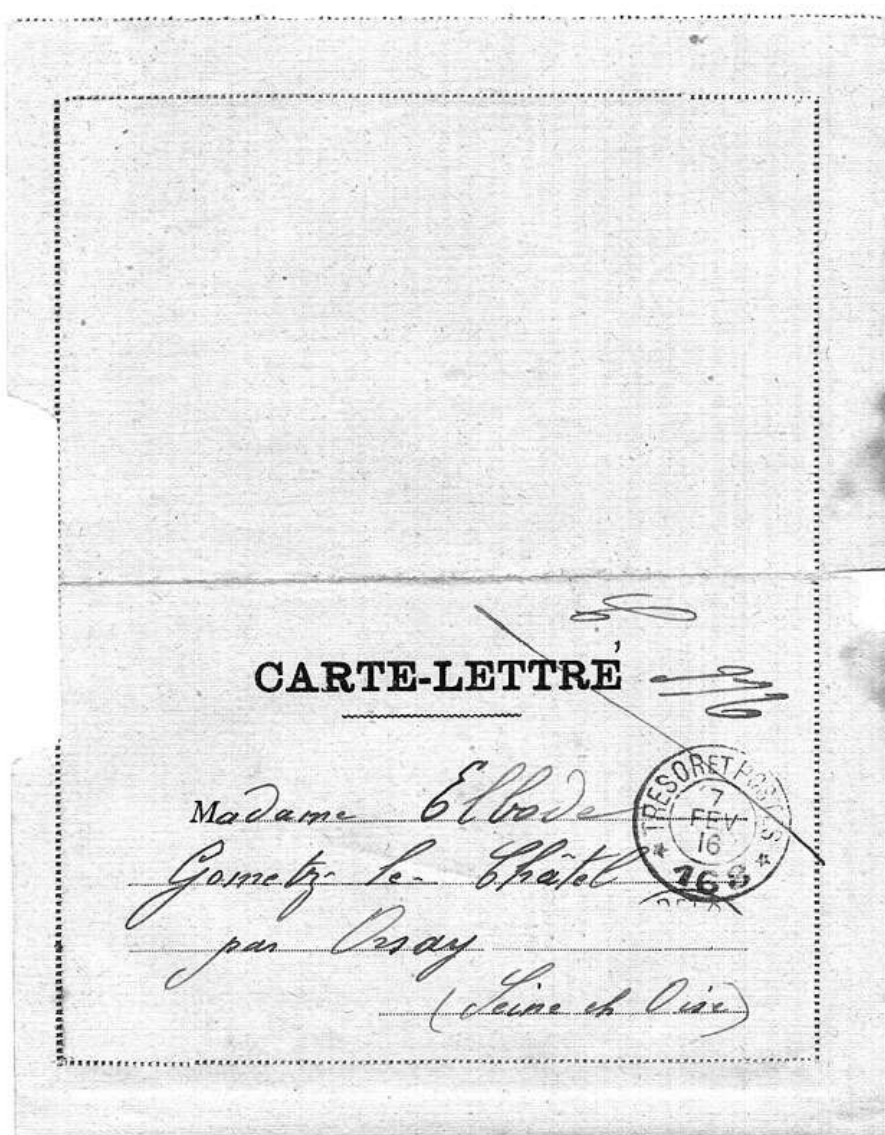 CARTE-LETTRE
Madame Elbode
Gometz-le-Châtel
par Orsay
(Seine et Oise)
TRESOR ET POSTES
7
FEV
16
* 168 *